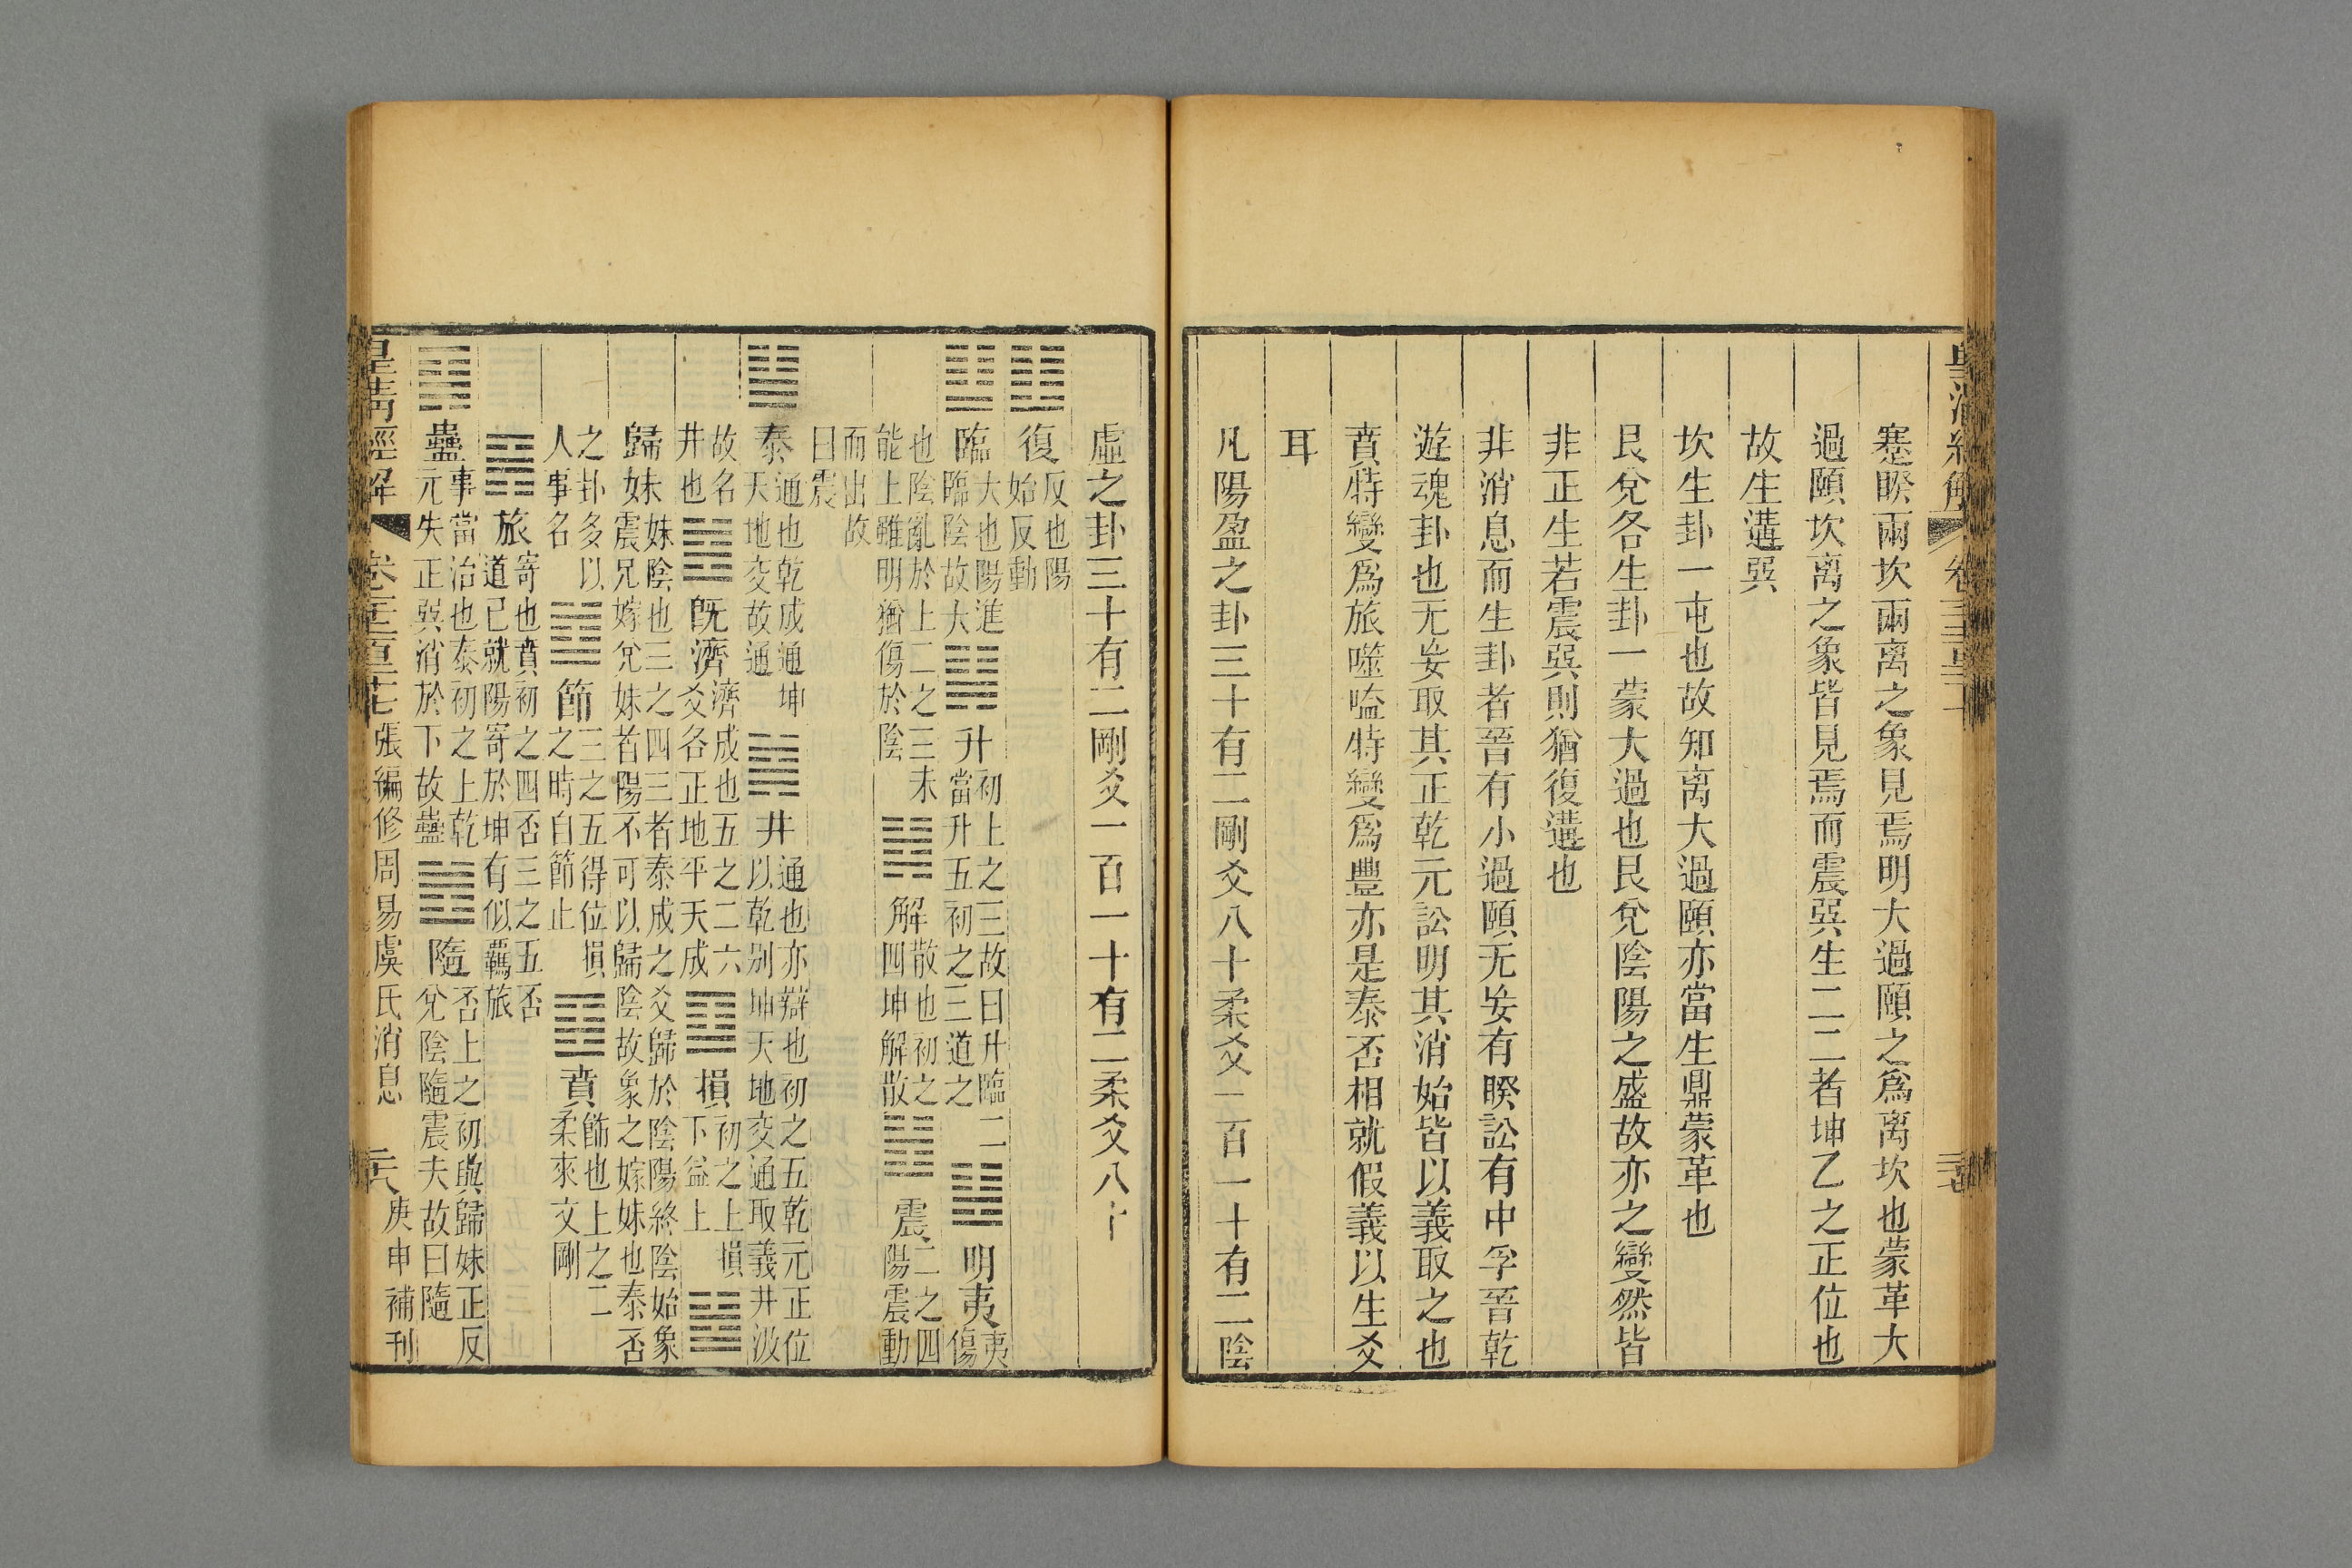 蹇睽兩坎兩离之象見焉明大過頤之爲离坎也蒙革大
過頤坎离之象皆見焉而震巽生二二者坤乙之正位也
故生遘巽
坎生卦一屯也故知离大過頤亦當生鼎蒙革也
艮兌各生卦一蒙大過也艮兌陰陽之盛故亦之變然皆
非正生若震巽則猶復遘也
非消息而生卦者晉有小過頤无妄有睽訟有中孚晉乾
遊魂卦也无妄取其正乾元訟明其消始皆以義取之也
賁特變爲旅噬嗑特變爲豐亦是泰否相就假義以生爻
耳
凡陽盈之卦三十有二剛爻八十柔爻一百一十有二陰
虛之卦三十有二剛爻一百一十有二柔爻八十
䷗復反也陽始反動
䷒臨大也陽進臨陰故大䷭升初上之三故曰升臨二當升五初之三道之䷣明夷夷傷
也陰亂於上二之三未能上雖明猶傷於陰䷧解散也初之四坤解散䷲震二之四陽震動
而出故曰震
䷊泰通也乾成通坤天地交故通䷯井通也亦辯也初之五乾元正位以乾别坤天地交通取義井汲
故名井也䷾既濟濟成也五之二六爻各正地平天成䷨損初之上損下益上䷵
歸妹妹陰也三之四三者泰成之爻歸於陰陽終陰始象震兄嫁兌妹者陽不可以歸陰故象之嫁妹也泰否
之卦多以人事名䷻節三之五得位損之時自節止䷕賁飾也上之二柔來文剛
䷷旅寄也賁初之四否三之五否道已就陽寄於坤有似羈旅
䷑蠱事當治也泰初之上乾元失正巽消於下故蠱䷐隨否上之初與歸妹正反兌陰隨震夫故曰隨
皇清經解
張編修周易虞氏消息
庚申補刊